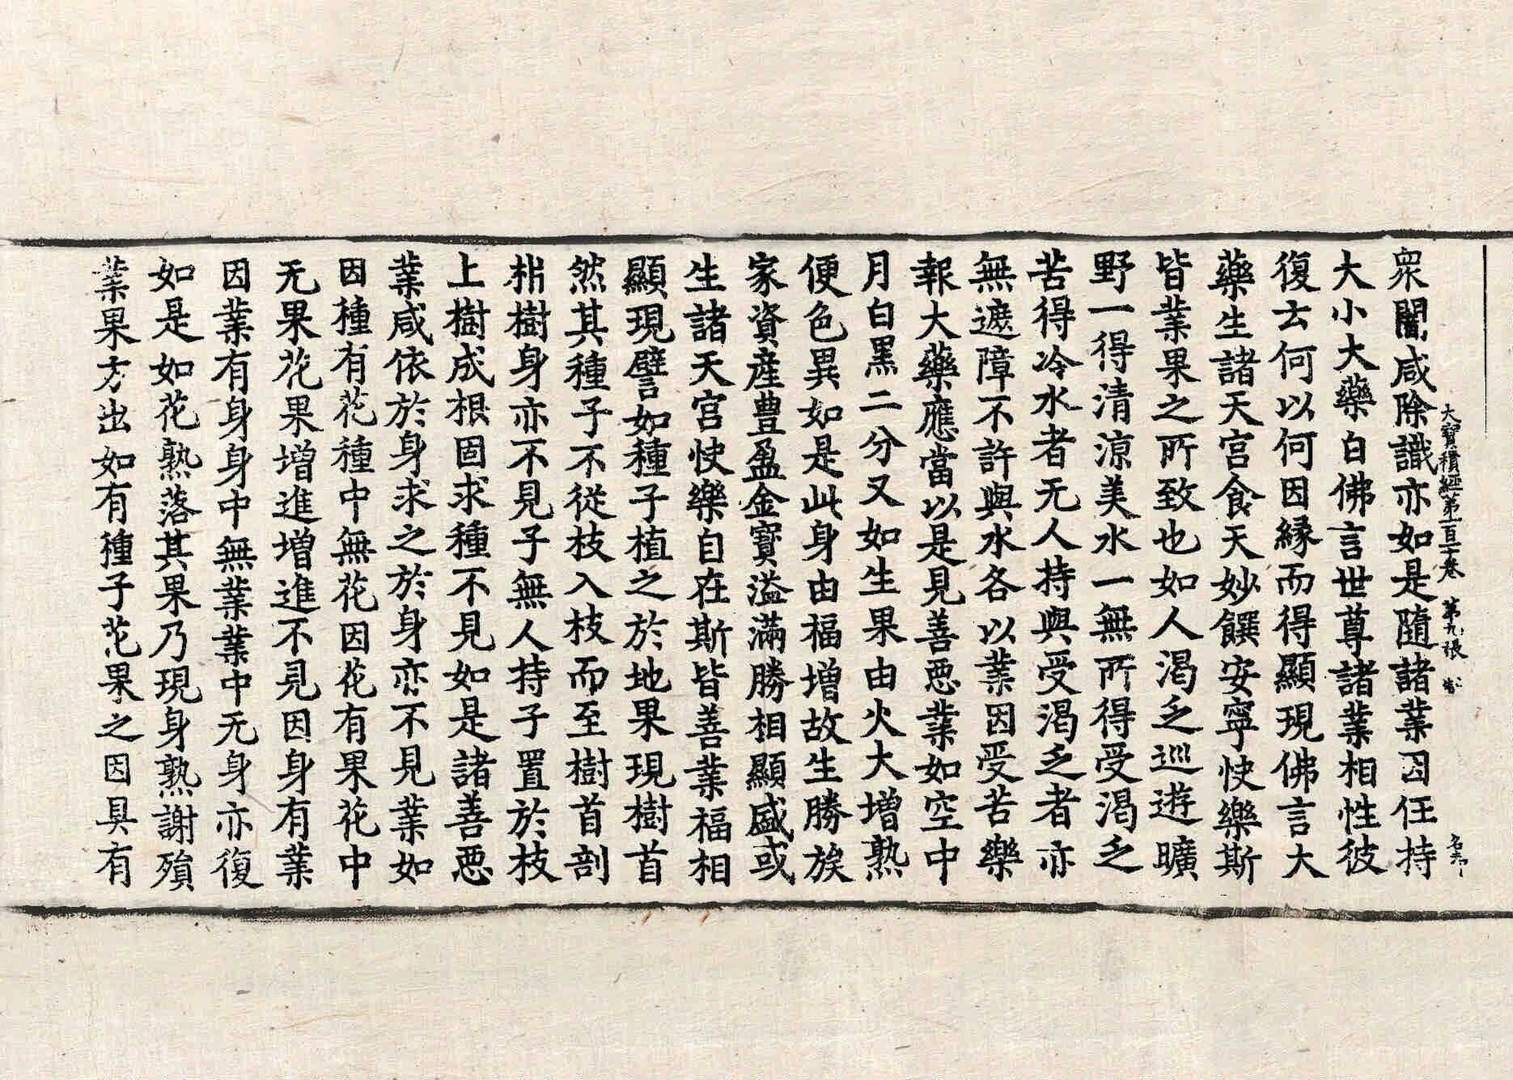 大寶積經第一百十卷　第九張
衆闇咸除識亦如是隨諸業因任持
大小大藥白佛言世尊諸業相性彼
復云何以何因縁而得顯現佛言大
藥生諸天宮食天妙饌安寧快樂斯
皆業果之所致也如人渴乏巡遊曠
野一得清涼美水一無所得受渴乏
苦得冷水者无人持與受渴乏者亦
無遮障不許與水各以業因受苦樂
報大藥應當以是見善惡業如空中
月白黑二分又如生果由火大增熟
便色異如是此身由福增故生勝族
家資産豊盈金寶溢滿勝相顯盛或
生諸天宮快樂自在斯皆善業福相
顯現譬如種子植之於地果現樹首
然其種子不從枝入枝而至樹首剖
析樹身亦不見子無人持子置於枝
上樹成根固求種不見如是諸善惡
業咸依於身求之於身亦不見業如
因種有花種中無花因花有果花中
无果花果增進增進不見因身有業
因業有身身中無業業中无身亦復
如是如花熟落其果乃現身熟謝殞
業果方出如有種子花果之因具有